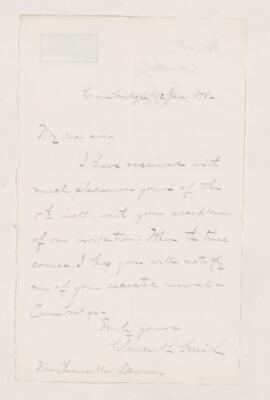 Cambridge, 12 Jan. 1878.
My dear sir.
I have received with
much pleasure yours of the
inst., with your acceptance
of our invitation. When the time
comes, I beg you will notify
me of your expected arrival in
Cambridge.
Truly yours
Clement L. Smith.
Mr. Chancellor Dawson